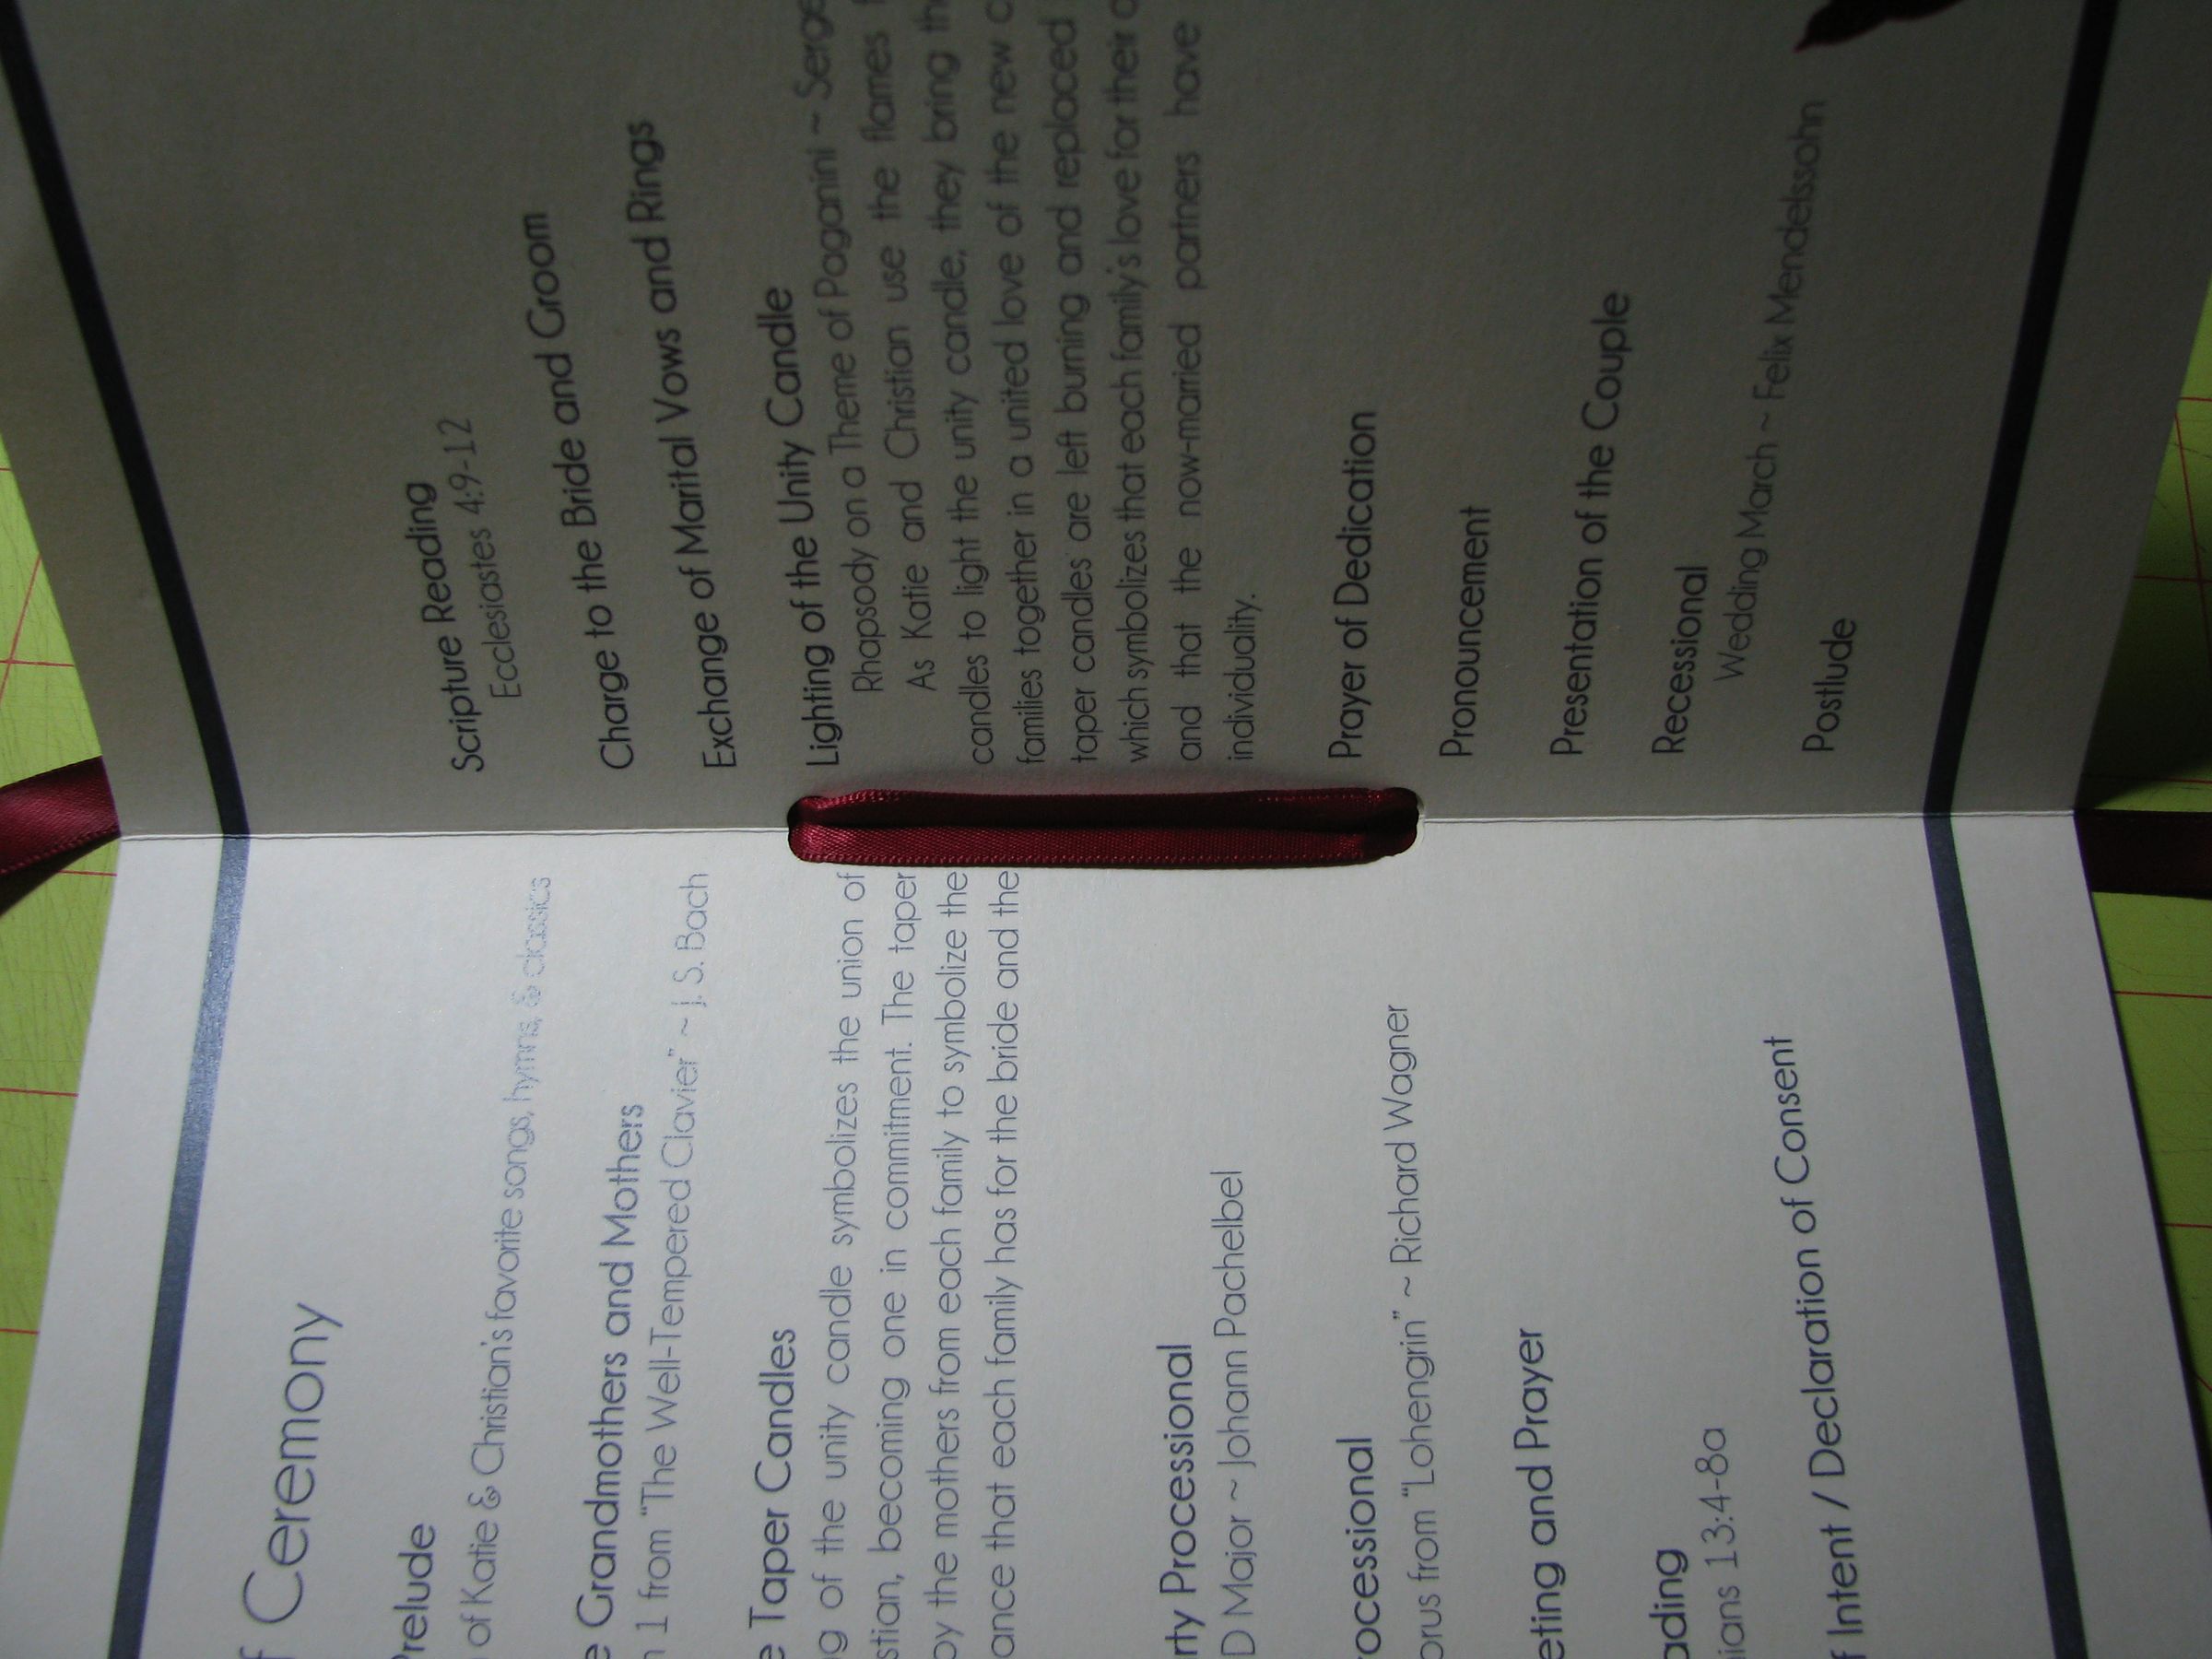 Ceremony
of Katie & Christian's favorite songs, hymns, & classics
Grandmothers and Mothers
1 from "The Well-Tempered Clavier" ~ J. S. Bach
Taper Candles
of the unity candle symbolizes the union of
becoming one in commitment. The taper
the mothers from each family to symbolize the
that each family has for the bride and the
Processional
D Major ~ Johann Pachelbel
from "Lohengrin" ~ Richard Wagner
and Prayer
13:4-8a
Intent / Declaration of Consent
Scripture Reading
Ecclesiastes 4:9-12
Charge to the Bride and Groom
Exchange of Marital Vows and Rings
Lighting of the Unity Candle
Rhapsody on a Theme of Paganini ~
As Katie and Christian use the flames
candles to light the unity candle, they bring
families together in a united love of the new
taper candles are left burning and replaced
which symbolizes that each family's love for their
and that the now-married partners have
individuality.
Prayer of Dedication
Pronouncement
Presentation of the Couple
Recessional
Wedding March ~ Felix Mendelssohn
Postlude